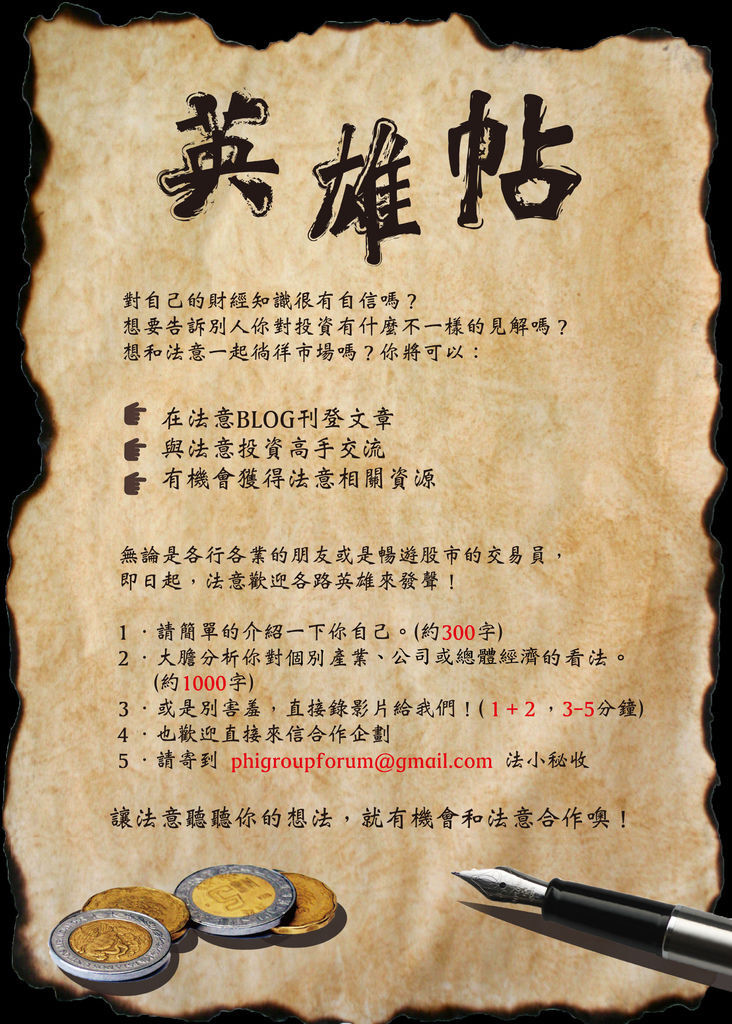 英雄帖
對自己的財經知識很有自信嗎？
想要告訴別人你對投資有什麼不一樣的見解嗎？
想和法意一起徜徉市場嗎？你將可以：
在法意BLOG刊登文章
與法意投資高手交流
有機會獲得法意相關資源
無論是各行各業的朋友或是暢遊股市的交易員，
即日起，法意歡迎各路英雄來發聲！
1 ‧ 請簡單的介紹一下你自己。(約300字)
2 ‧ 大膽分析你對個別產業、公司或總體經濟的看法。
(約1000字)
3 ‧ 或是別害羞，直接錄影片給我們！( 1 + 2 ，3-5分鐘)
4 ‧ 也歡迎直接來信合作企劃
5 ‧ 請寄到 phigroupforum@gmail.com 法小秘收
讓法意聽聽你的想法，就有機會和法意合作噢！